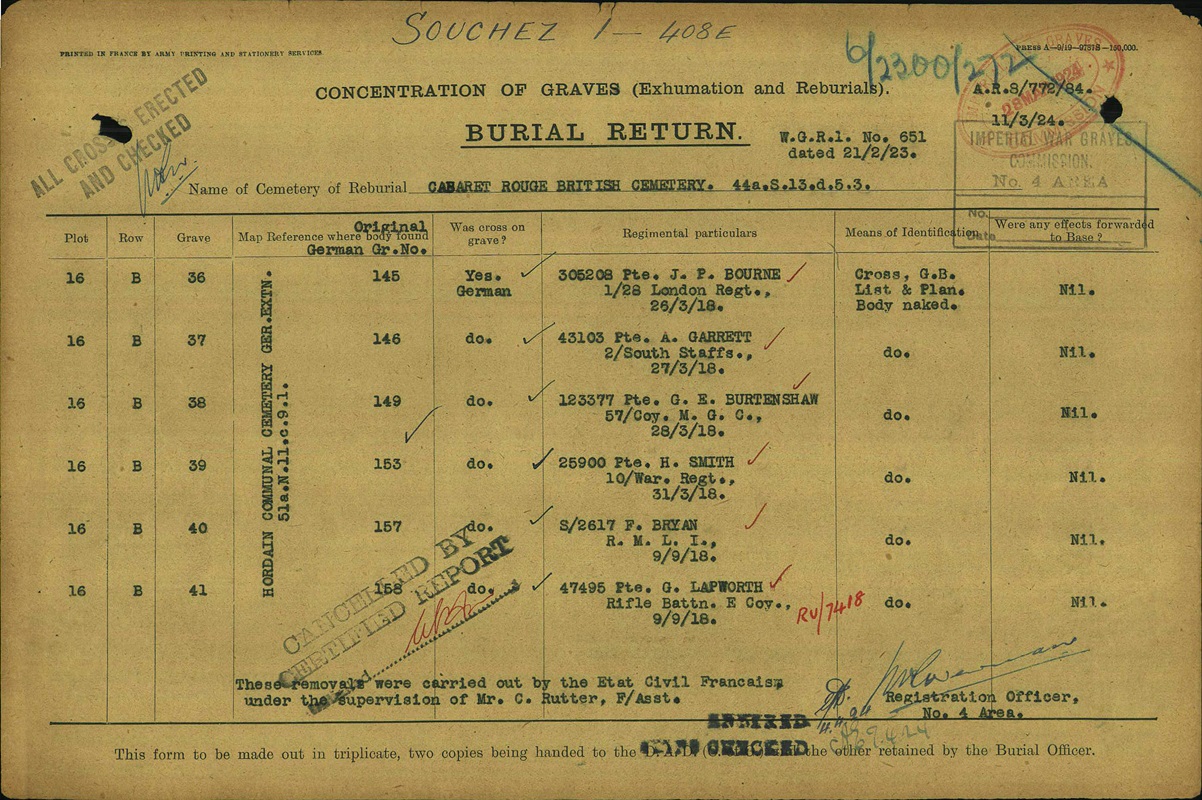 SOUCHEZ 1 - 408E
PRINTED IN FRANCE BY ARMY PRINTING AND STATIONERY SERVICES
6/2300/272
PRESS A-9/19-9731S-150,000.
GRAVES
28 MAR 1924
ALL CROSSES ERECTED
AND CHECKED
CONCENTRATION OF GRAVES (Exhumation and Reburials).
A.R.S/772/84.
11/3/24.
BURIAL RETURN.
W.G.R.1. No. 651
dated 21/2/23.
IMPERIAL WAR GRAVES
COMMISSION.
No. 4 AREA
No.
Date
Name of Cemetery of Reburial CABARET ROUGE BRITISH CEMETERY. 44a.S.13.d.5.3.
Plot Row Grave Map Reference where body found Original German Gr.No. Was cross on grave? Regimental particulars Means of Identification Were any effects forwarded to Base?
HORDAIN COMMUNAL CEMETERY GER.EXTN.
51a.N.11.c.9.1.
16 B 36 145 Yes. 305208 Pte. J. P. BOURNE Cross, G.B.
German 1/28 London Regt., List & Plan. Nil.
26/3/18. Body naked.
16 B 37 146 do. 43103 Pte. A. GARRETT
2/South Staffs., do. Nil.
27/3/18.
16 B 38 149 do. 123377 Pte. G. E. BURTENSHAW
57/Coy. M. G. C., do. Nil.
28/3/18.
16 B 39 153 do. 25900 Pte. H. SMITH
10/War. Regt., do. Nil.
31/3/18.
16 B 40 157 do. S/2617 F. BRYAN
R. M. L. I., do. Nil.
9/9/18.
16 B 41 158 do. 47495 Pte. G. LAPWORTH
Rifle Battn. E Coy., do. Nil.
9/9/18.
RU/7418
CANCELLED BY
CERTIFIED REPORT
These removals were carried out by the Etat Civil Francais,
under the supervision of Mr. C. Rutter, F/Asst.
Registration Officer,
No. 4 Area.
CHECKED
This form to be made out in triplicate, two copies being handed to the D.A.D. the other retained by the Burial Officer.